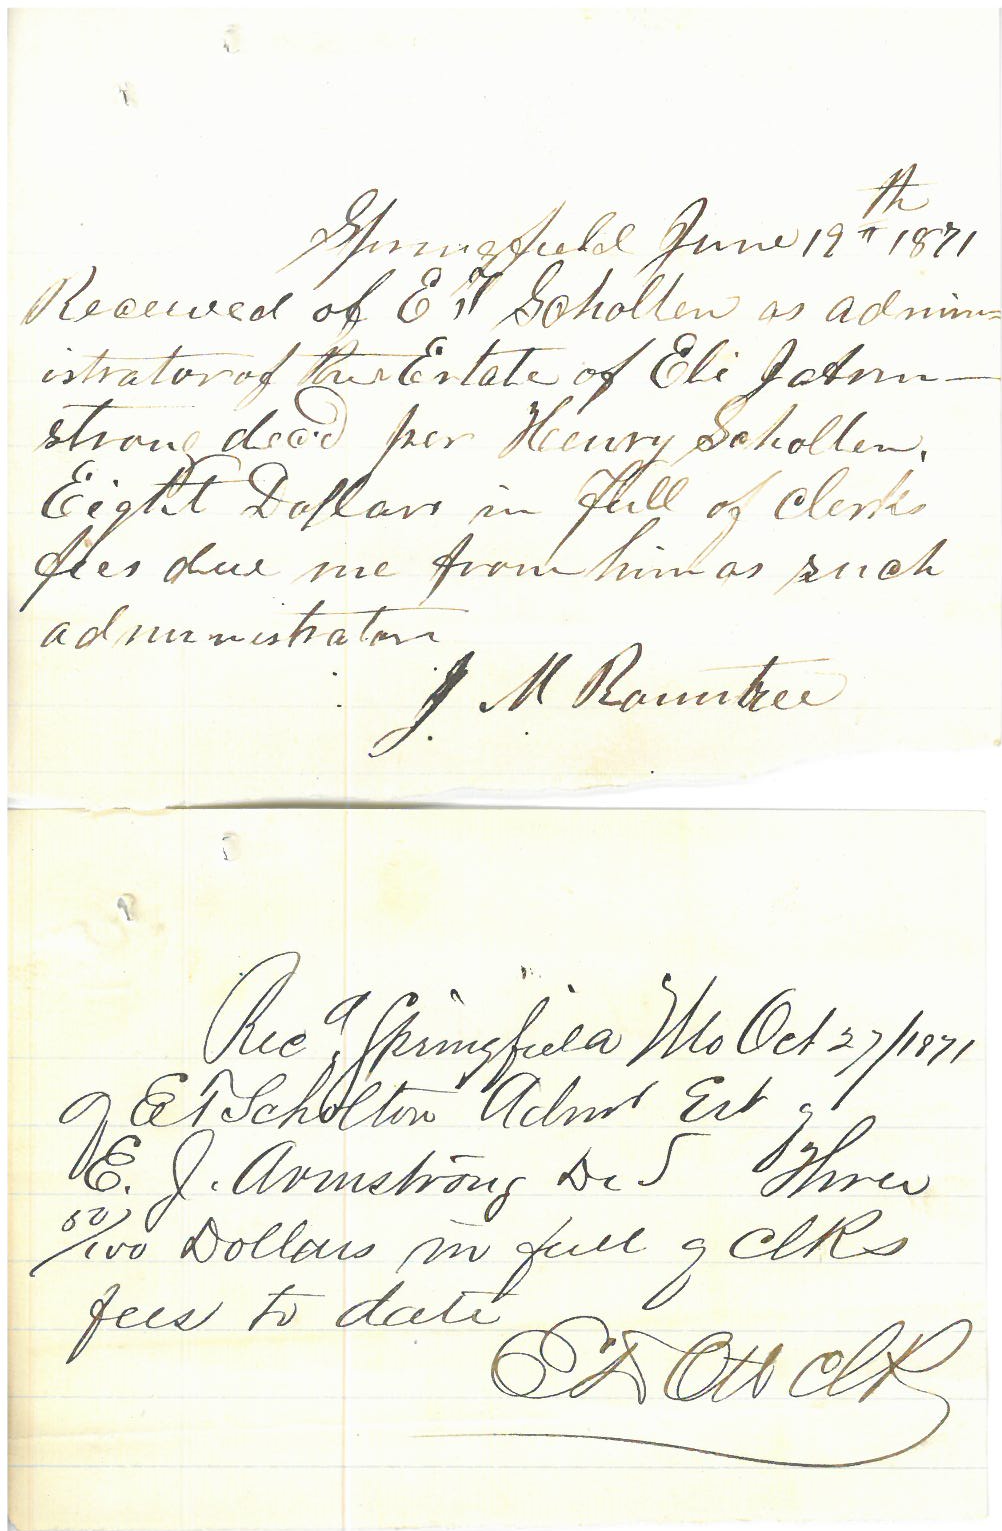 Springfield June 19th 1871
Received of E T Scholten as admin=
istrator of the Estate of Eli J Arm—
strong dec'd per Henry Scholten.
Eight Dollars in full of clerks
fees due me from him as such
administrator
J. M Rountree
Recd Springfield Mo Oct 27/1871
of E T Scholton Admr Est of
E. J. Armstrong Three
50/100 Dollars in full of clks
fees to date
Otto ClK